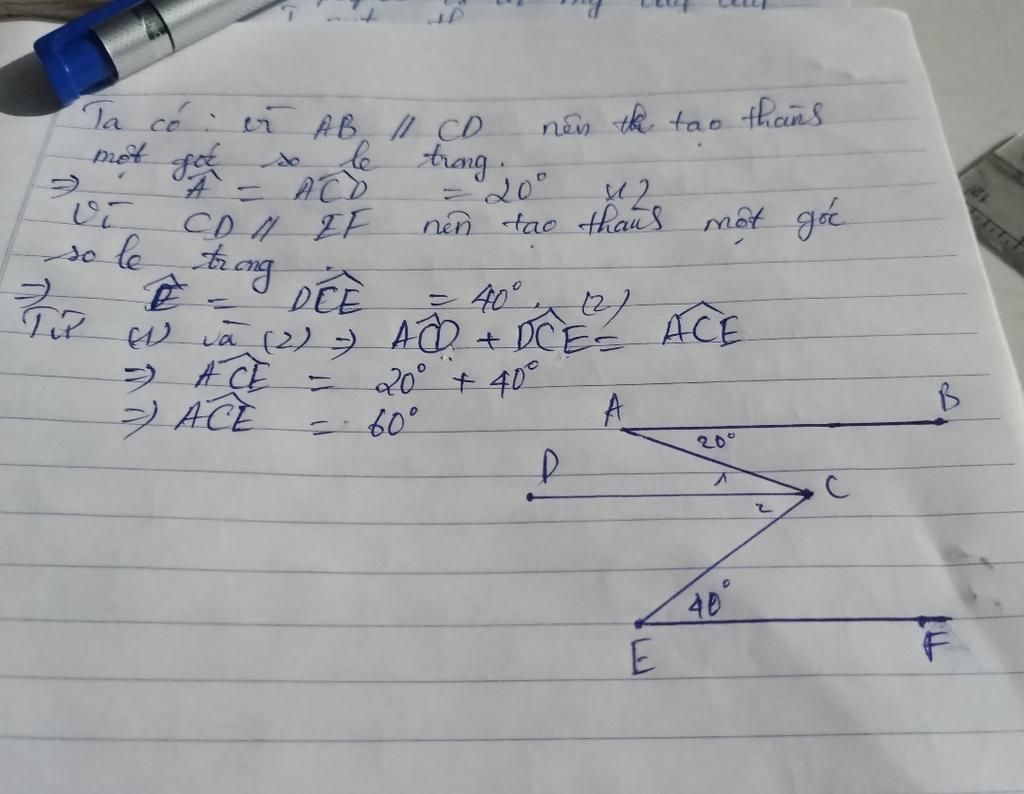 Ta có : vì AB // CD nên tạo thành
một góc so le trong.
=> Â = ACD = 20°
Vì CD // EF nên tạo thành một góc
so le trong.
=> Ê = DCE = 40°. (2)
Từ (1) và (2) => ACD + DCE = ACE
=> ACE = 20° + 40°
=> ACE = 60°
A B
20°
D
1
C
2
40°
E F